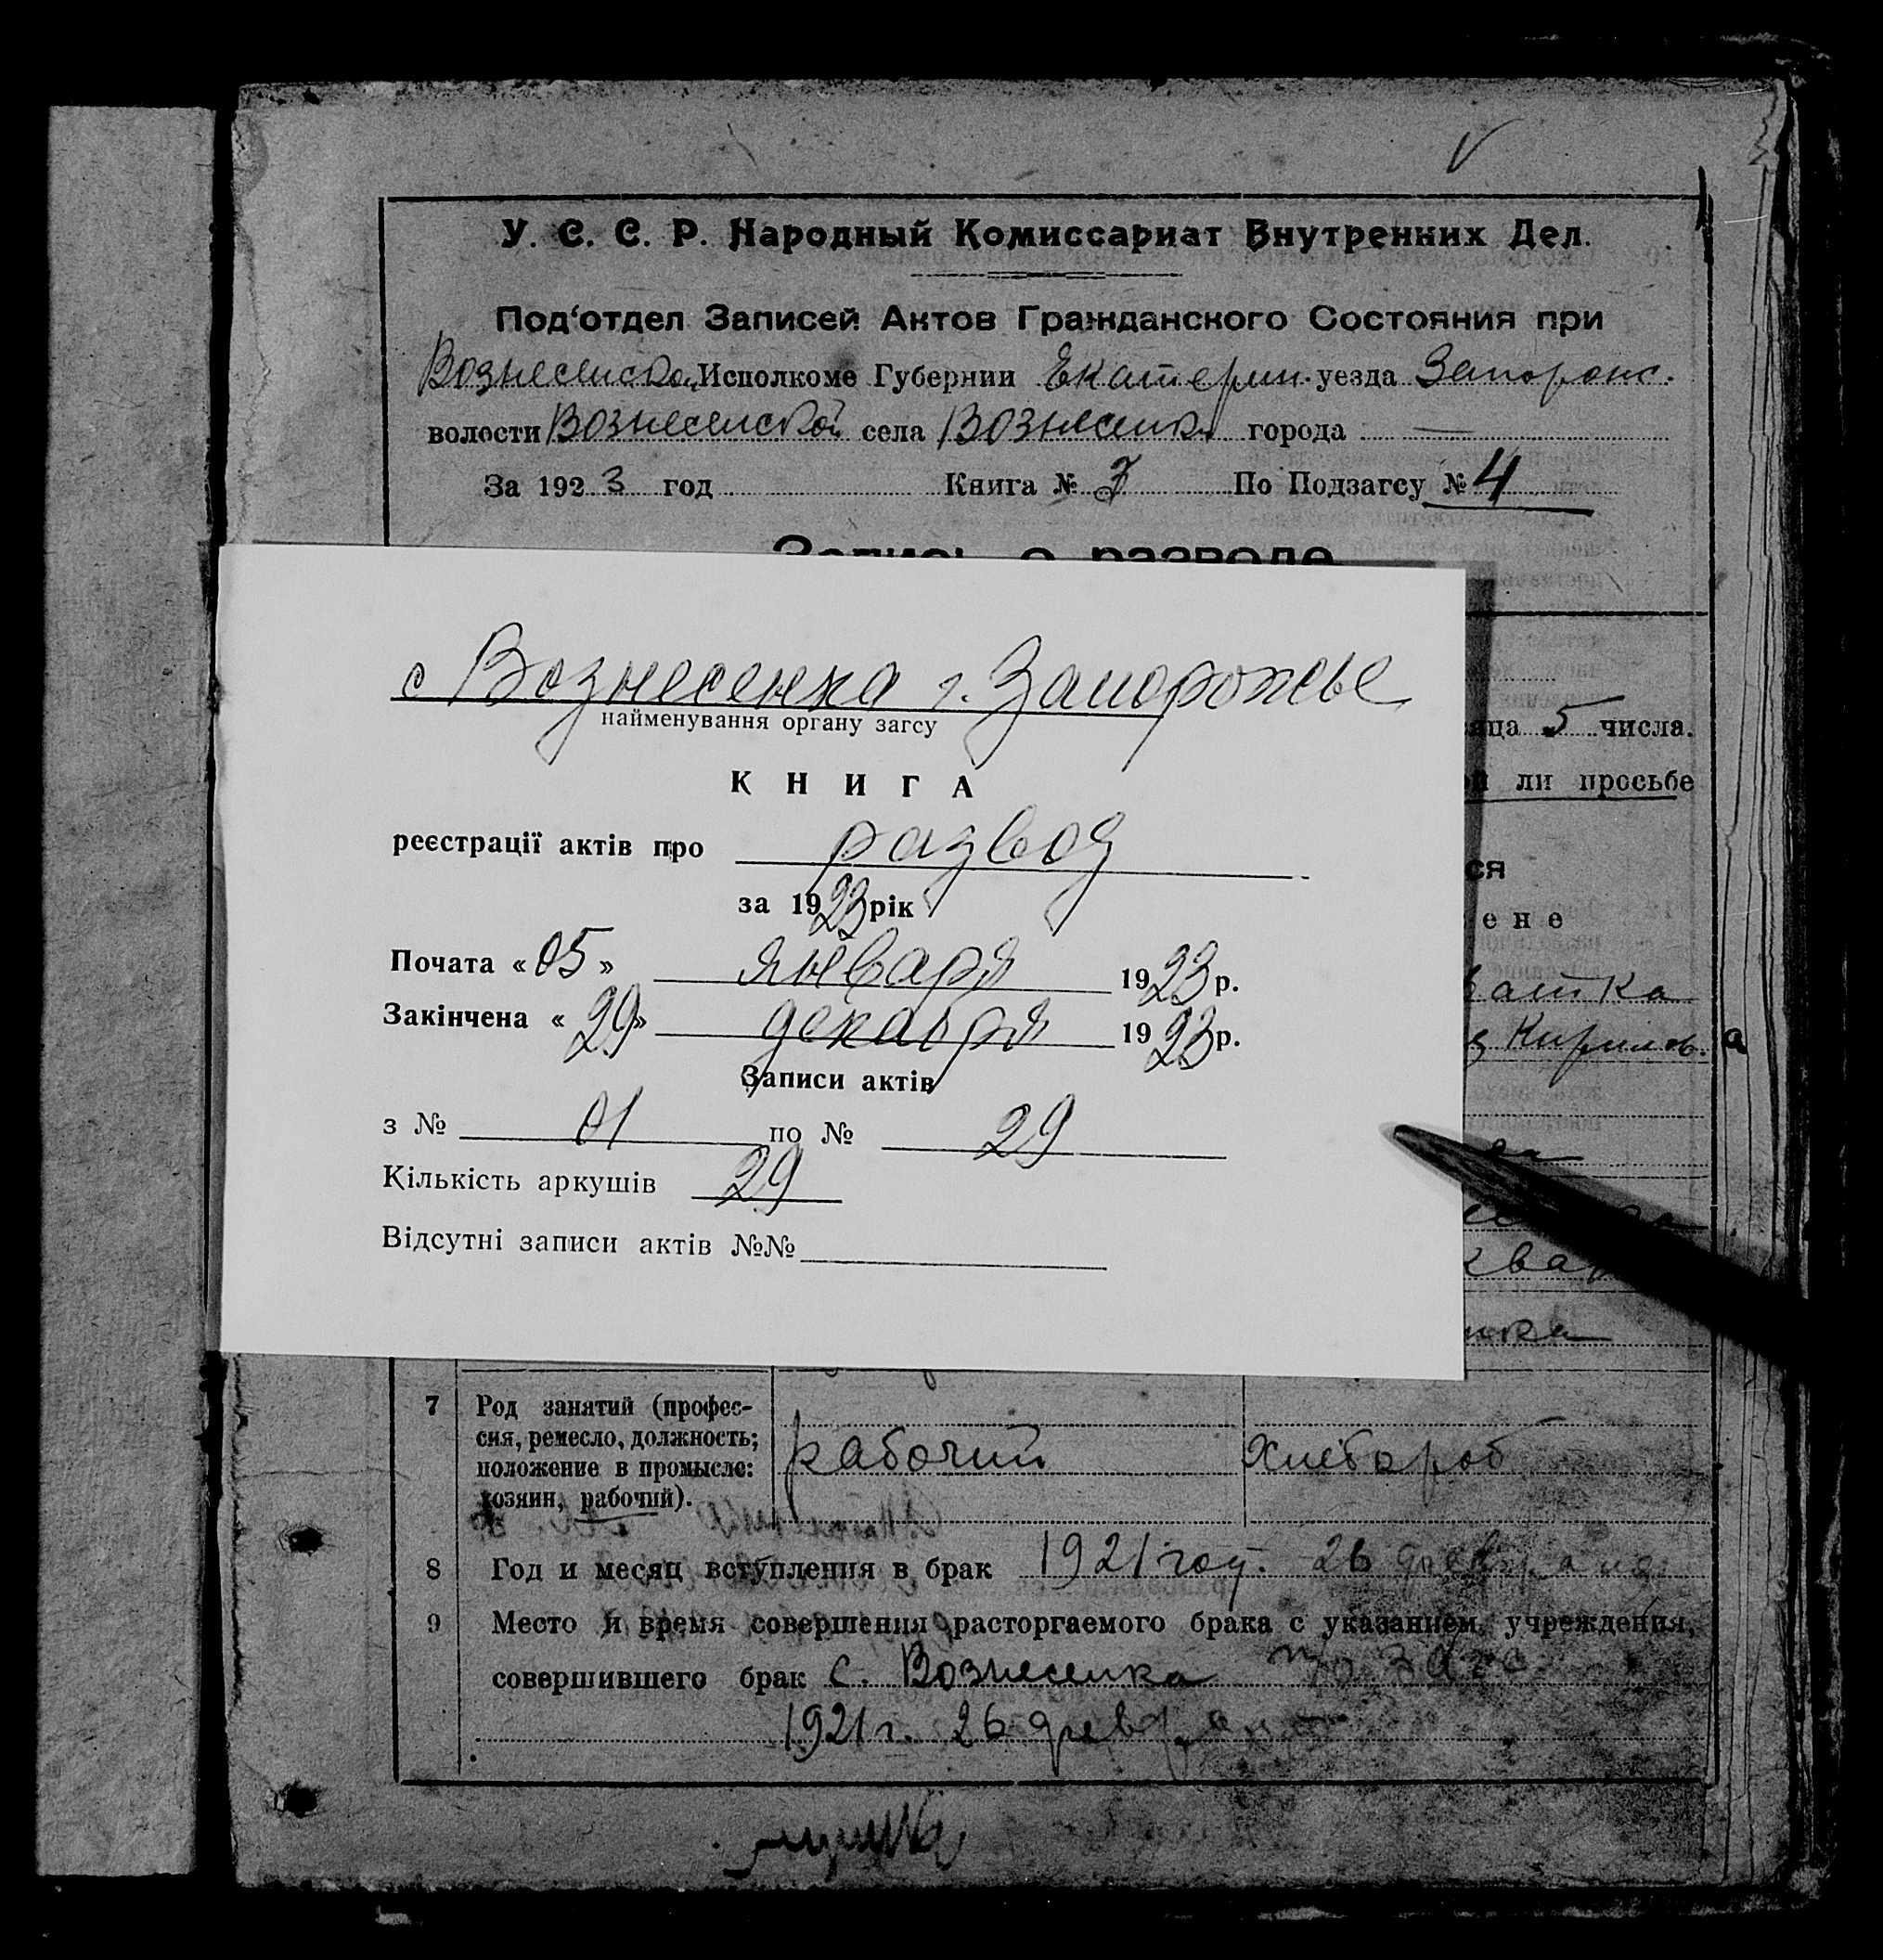 У. С. С. Р. Народный Комиссариат Внутренних Дел.
Под‘отдел Записей Актов Гражданского Состояния при
Вознесенском Исполкоме Губернии Екатерин. уезда Запорожс.
волости Вознесенской села Вознесенка города —
За 1923 год Книга № По Подзагсу № 4
Запись о разводе
с Вознесенка г. Запорожье
найменування органу загсу
КНИГА
реєстрації актів про развод
за 1923 рік
Почата «05» января 1923 р.
Закінчена «29» декабря 1923 р.
Записи актів
з № 01 по № 29
Кількість аркушів 29
Відсутні записи актів №№
5 числа.
ли просьбе
ся
ене
Кирилов.
7 Род занятий (профес-
сия, ремесло, должность;
положение в промысле:
хозяин, рабочий).
рабочий хлебороб
8 Год и месяц вступления в брак 1921 год. 26 февраля
9 Место и время совершения расторгаемого брака с указанием учреждения,
совершившего брак с. Вознесенка
1921 г. 26 февраля